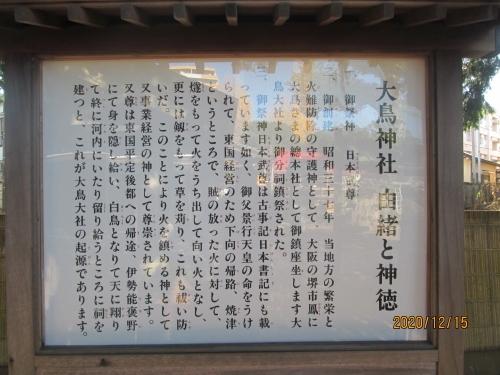 大鳥神社 由緒と神徳
一、御祭神 日本武尊
二、御創建 昭和三十七年 当地方の繁栄と
火難防除の守護神として、大阪の堺市鳳に
大鳥さまの總本社として御鎮座坐します大
鳥大社より御分祠鎮祭された。
三、御祭神日本武尊は古事記日本書記にも載
っています如く、御父景行天皇の命をうけ
られて、東国経営のため下向の帰路、焼津
というところで、賊の放った火に対して、
燧をもって火をうち出して向い火となし、
更には剱をもって草を苅り、これも祓い防
いだ。このことにより火を鎮める神として
又事業経営の神として尊崇されています。
又尊は東国平定後都への帰途、伊勢能褒野
にて身を隠し給い、白鳥となりて天に翔り
て終に河内にいたり留り給うところに祠を
建つと、これが大鳥大社の起源であります。
2020/12/15